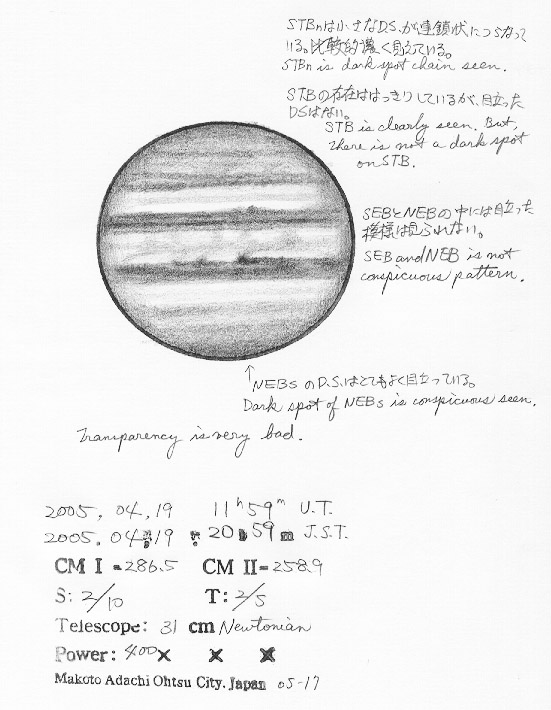 STBnは小さなD.S.が連鎖状につらなって
いる。比較的濃く見えている。
STBn is dark spot chain seen.
STBの存在ははっきりしているが、目立った
DSはない。
STB is clearly seen. But,
there is not a dark spot
on STB.
SEBとNEBの中には目立った
模様は見られない。
SEB and NEB is not
conspicuous pattern.
↑NEBsのD.S.はとてもよく目立っている。
Dark spot of NEBs is conspicuous seen.
Transparency is very bad.
2005, 04, 19 11h 59m U.T.
2005, 04 19 20h 59m J.S.T.
CM I =286.5 CM II=258.9
S: 2/10 T: 2/5
Telescope: 31 cm Newtonian
Power: 400× × ×
Makoto Adachi Ohtsu City. Japan 05-17